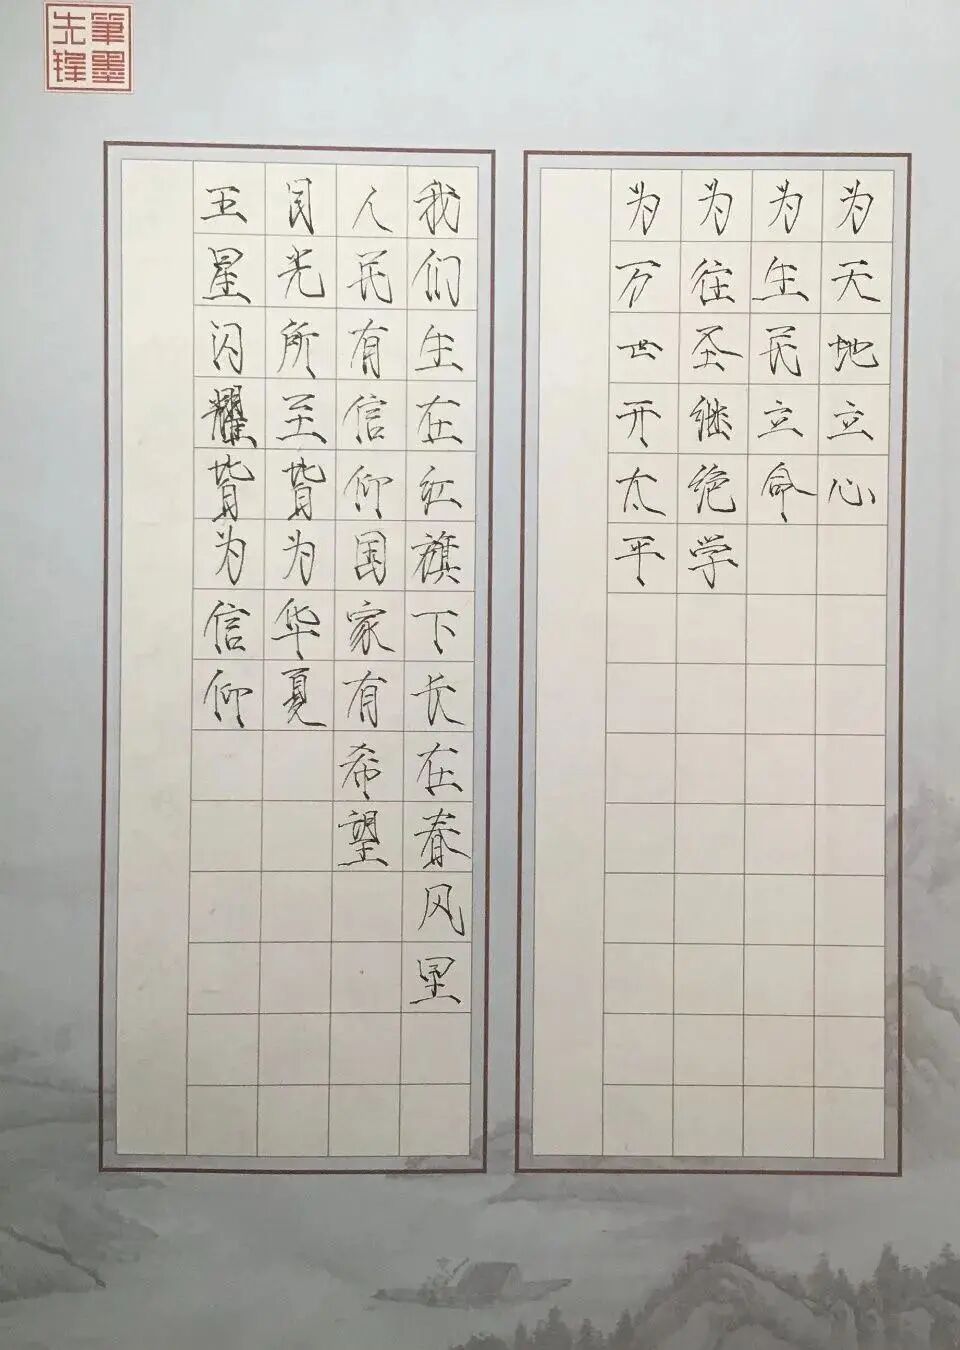 筆墨
先锋
为天地立心
为生民立命
为往圣继绝学
为万世开太平
我们生在红旗下长在春风里
人民有信仰国家有希望
目光所至皆为华夏
五星闪耀皆为信仰